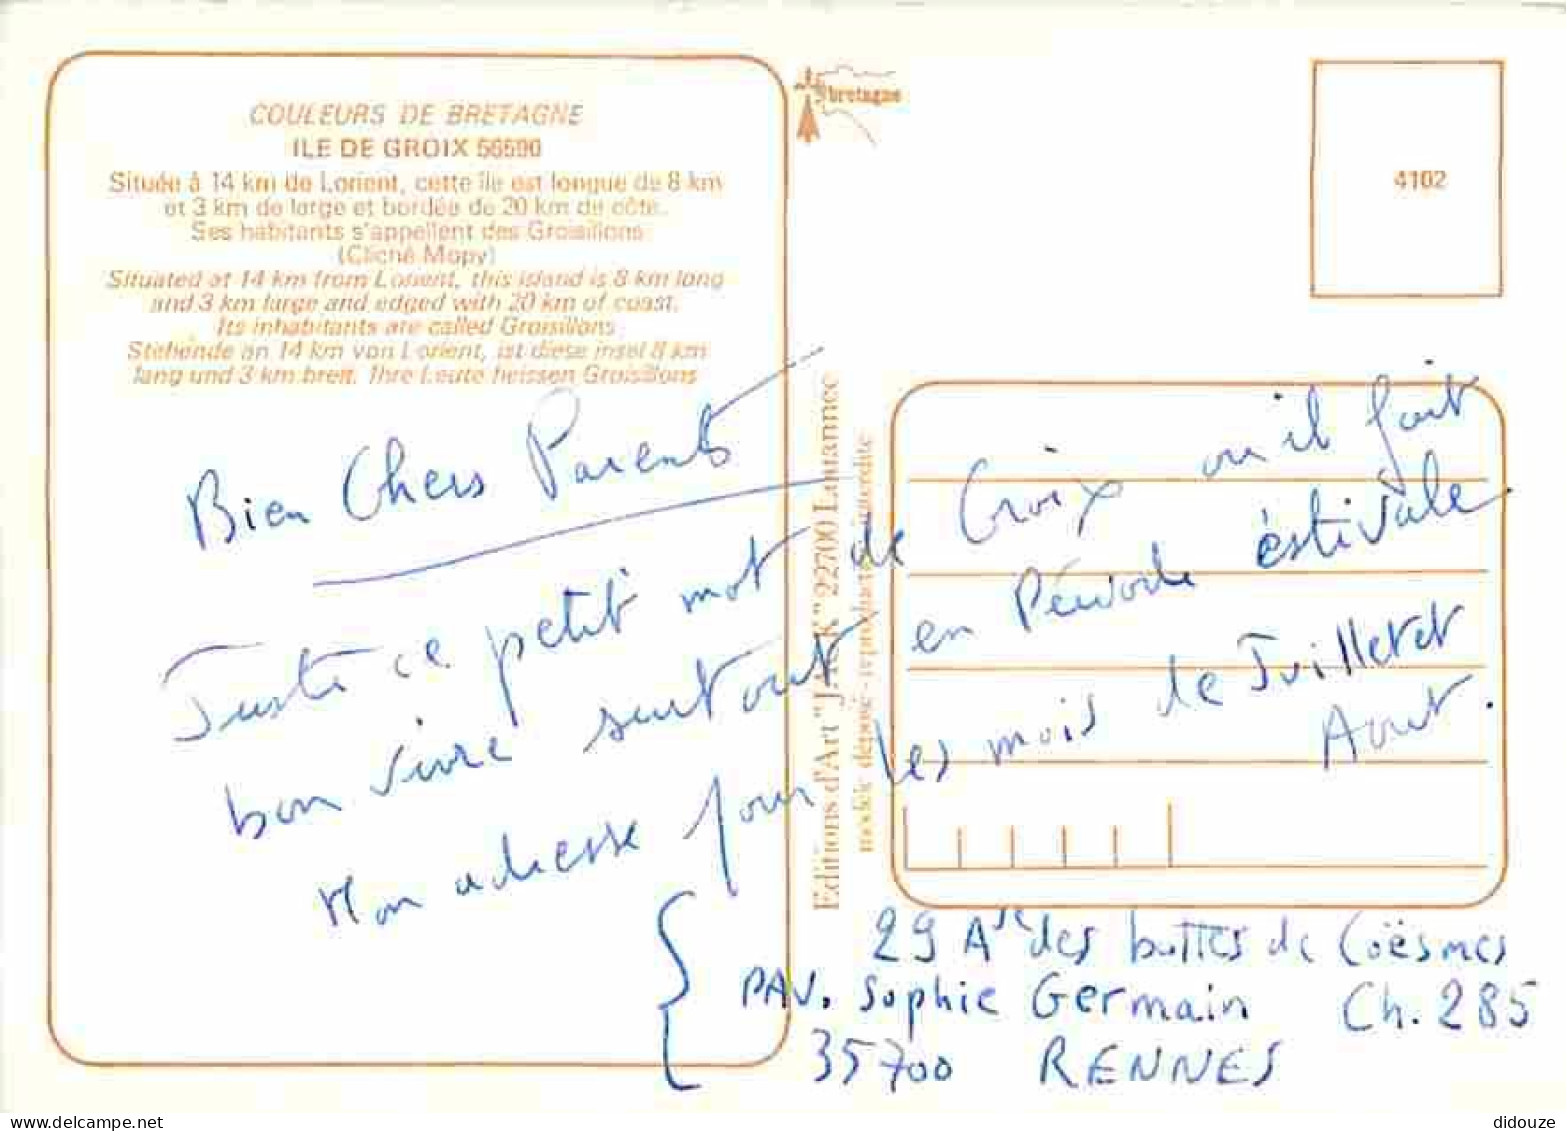 COULEURS DE BRETAGNE
ILE DE GROIX 56590
Située à 14 km de Lorient, cette île est longue de 8 km
et 3 km de large et bordée de 20 km de côte.
Ses habitants s'appellent des Groisillons
(Cliché Mopy)
Situated at 14 km from Lorient, this island is 8 km long
and 3 km large and edged with 20 km of coast.
Its inhabitants are called Groisillons
Stehende an 14 km von Lorient, ist diese insel 8 km
lang und 3 km breit. Ihre Leute heissen Groisillons
bretagne
4102
Editions d'Art "JACK" 22700 Louannec
modèle déposé - reproduction interdite
Bien Chers Parents
Juste ce petit mot de Groix ou il fait
bon vivre surtout en Période éstivale
Mon adresse pour les mois de Juillet et
Aout.
29 Ave des buttes de Coësmes
PAV. Sophie Germain Ch. 285
35700 RENNES
didouze